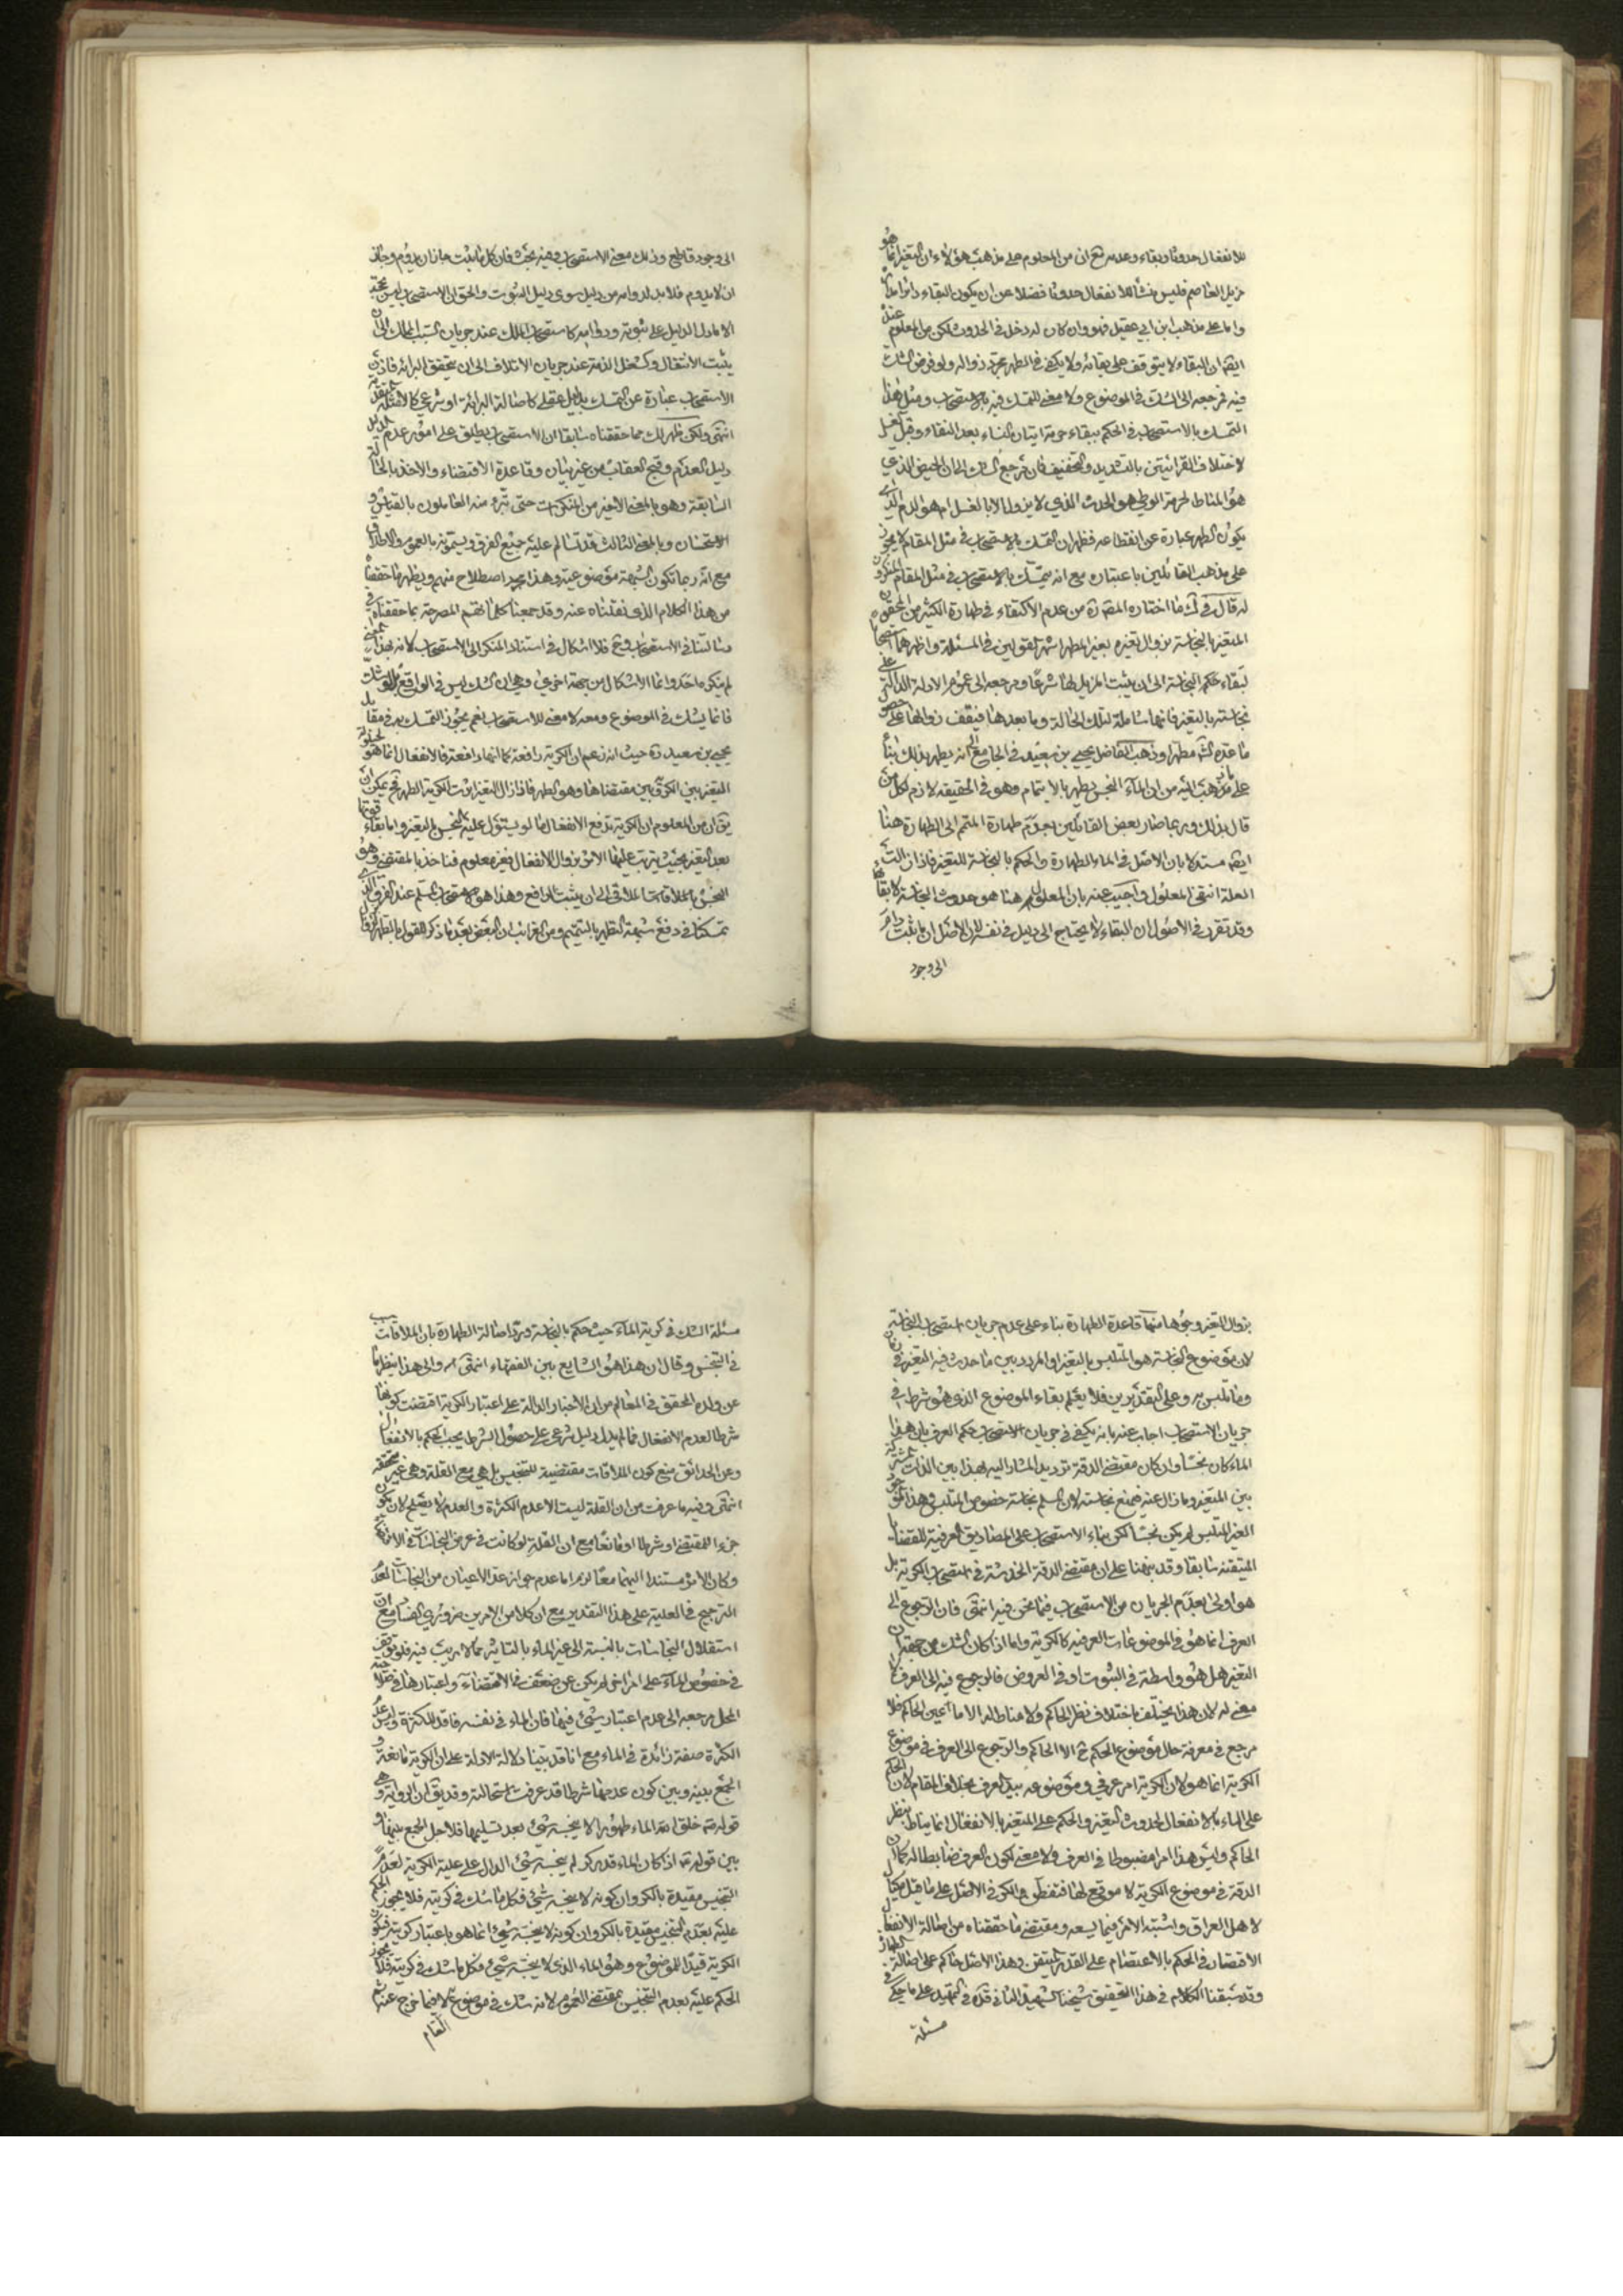 للانفعال حدوثا وبقاء وعدمه مع ان من المعلوم على مذهب هؤلاء ان التغير انما هو
مزيل العاصم فليس منشأ للانفعال حدوثا فضلا عن ان يكون البقاء دائرا مداره
واما على مذهب ابن ابي عقيل فهو وان كان له دخل في الحدوث لكن من المعلوم عنده
ايضا ان البقاء لا يتوقف على بقائه ولا يكفي في الطهر مجرد زواله ولو فرض الشك
فيه فمرجعه الى الشك في الموضوع ولا معنى للتمسك فيه بالاستصحاب ومثل هذا
التمسك بالاستصحاب في الحكم ببقاء حرمة اتيان النساء بعد النقاء وقبل الغسل
لاختلاف القرائتين بالتشديد والتخفيف فان مرجع الشك الى ان الحيض الذي
هو المناط لحرمة الوطي هو الحدث الذي لا يزول الا بالغسل ام هو الدم الذي
يكون الطهر عبارة عن انقطاعه فظهر ان التمسك بالاستصحاب في مثل المقام لا يجري
على مذهب القائلين باعتباره مع انه يتمسك بالاستصحاب في مثل المقام المنكرون
له قال في ك ما اختاره المصره من عدم الاكتفاء في طهارة الكثير من المحقون
المتغير بالنجاسة بزوال تغيره بغير المطهر اشهر القولين في المسئلة واظهرهما استصحابا
لبقاء حكم النجاسة الى ان يثبت المزيل لها شرعا ومرجعه الى عموم الادلة الدالة على
نجاسته بالتغير فانها شاملة لتلك الحالة وما بعدها فيقف زوالها على حصول
ما عده الش مطهرا وذهب الفاضل يحيى بن سعيد في الجامع الى انه يطهر بذلك بناء
على ما ذهب اليه من ان الماء النجس يطهر بالاتمام وهو في الحقيقة لازم لكل من
قال بذلك وربما صار بعض القائلين بعدم طهارة المتمم الى الطهارة هنا
ايضا مستدلا بان الاصل في الماء الطهارة والحكم بالنجاسة للتغير فاذا زالت
العلة انتفى المعلول واجيب عنه بان المعلول هنا هو حدوث النجاسة لا بقائها
وقد تقرر في الاصول ان البقاء لا يحتاج الى دليل في نفسه لان الاصل ان ما ثبت دام
الى وجود
الى وجود قاطع وذلك معنى الاستصحاب وفيه بحث فان كل ما ثبت جاز ان يدوم وجاز
ان لا يدوم فلا بد لدوامه من دليل سوى دليل الثبوت والحق ان الاستصحاب ليس بحجة
الا ما دل الدليل على ثبوته ودوامه كاستصحاب الملك عند جريان السبب المملك الى ان
يثبت الانتقال وكشغل الذمة عند جريان الاتلاف الى ان يتحقق البرائة فاذن
الاستصحاب عبارة عن التمسك بدليل عقلي كاصالة البرائة او شرعي كالامثلة المتقدمة
انتهى ولكن ظهر لك مما حققناه سابقا ان الاستصحاب يطلق على امور عدم الدليل
دليل العدم وقبح العقاب من غير بيان وقاعدة الاقتضاء والاخذ بالحالة
السابقة وهو بالمعنى الاخير من المنكرات حتى تبرء منه العاملون بالقياس و
الاستحسان وبالمعنى الثالث قد تسالم عليه جميع الفرق ويسمونه بالعموم والاطلاق
مع انه ربما تكون الشبهة موضوعية وهذا مجرد اصطلاح منهم ويظهر ما حققناه
من هذا الكلام الذي نقلناه عنه وقد جمعنا كلماتهم المصرحة بما حققناه في
رسالتنا في الاستصحاب وح فلا اشكال في استناد المنكر الى الاستصحاب لانه بهذا المعنى
لم ينكره احد وانما الاشكال من جهة اخرى وهي ان الشك ليس في الواقع
فانما يشك في الموضوع ومعه لا معنى للاستصحاب نعم يجوز التمسك به في مقابل
يحيى بن سعيد ره حيث انه زعم ان الكرية رافعة كما انها دافعة فالانفعال انما هو لحيلولة
التغير بين الكر وبين مقتضاها وهو الطهر فاذا زال التغير اثرت الكرية الطهر فح يمكن ان
يق ان من المعلوم ان الكرية تدفع الانفعال ما لو يستول عليه النجس بالتغير واما بقاء قوتها
بعد التغير بحيث يترتب عليها الاثر بزوال الانفعال فغير معلوم فناخذ بالمقتضي وهو
النجس بالملاقات الى ان يثبت الرافع وهذا هو الاستصحاب المسلم عند الفرق الذي
تمسكنا في دفع شبهة التطهير بالتتميم ومن الغرائب ان البعض بعد ما ذكر القول بالطهر
بزوال التغير وجوها منها قاعدة الطهارة بناء على عدم جريان استصحاب النجاسة
لان موضوع النجاسة هو المتلبس بالتغير او المردد بين ما حدث فيه التغير في زمان
وما تلبس به وعلى التقديرين فلا يعلم بقاء الموضوع الذي هو شرط في
جريان الاستصحاب اجاب عنه بانه يكفي في جريان الاستصحاب حكم العرف بان هذا
الماء كان نجسا وان كان مقتضى الدقة ترديد المشار اليه بهذا بين الذات المشتركة
بين المتغير وما زال عنه فمنع نجاسته لان المسلم نجاسة خصوص المتلبس وهذا الموجود
الغير المتلبس لم يكن نجسا لكن بناء الاستصحاب على المصاديق العرفية للقضايا
المتيقنة سابقا وقد نبهنا على ان مقتضى الدقة الخدشة في استصحاب الكرية بل
هو اولى بعدم الجريان من الاستصحاب فيما نحن فيه انتهى فان الرجوع الى
العرف انما هو في الموضوعات العرفية كالكرية واما اذا كان الشك من جهة ان
التغير هل هو واسطة في الثبوت او في العروض فالرجوع فيه الى العرف لا
معنى له لان هذا يختلف باختلاف نظر الحاكم ولا مناط له الا ما اعين الحاكم فلا
مرجع في معرفة حال موضوع الحكم ح الا الحاكم والرجوع الى العرف في موضوع
الكرية انما هو لان الكرية امر عرفي وموضوعه بيد العرف بخلاف المقام لان الحكم
على الماء بالانفعال لحدوث التغير والحكم على المتغير بالانفعال انما يناط بنظر
الحاكم وليس هذا امرا مضبوطا في العرف ولا معنى لكون العرف ضابطا له كما ان
الدقة في موضوع الكرية لا موقع لها فتفطن والكر في الاصل على ما قيل مكيال
لاهل العراق واشتبه الامر فيما يسعه ومقتضى ما حققناه من اصالة الانفعال
الاقتصار في الحكم بالاعتصام على القدر المتيقن وهذا الاصل حاكم على اصالة الطهارة
وقد سبقنا الكلام في هذا التحقيق شيخنا الشهيد الثاني قده في التمهيد على ما حكي في
مسئلة
مسئلة الشك في كرية الماء حيث حكم بالنجاسة ورد اصالة الطهارة بان الملاقات سبب
في التنجس وقال ان هذا هو الشايع بين الفقهاء انتهى والى هذا ينظر ما
عن ولده المحقق في المعالم من ان الاخبار الدالة على اعتبار الكرية اقتضت كونها
شرطا لعدم الانفعال فما لم يدل دليل شرعي على حصول الشرط يجب الحكم بالانفعال
وعن الحدائق منع كون الملاقات مقتضية للتنجيس بل هي مع القلة وهي غير محققة
انتهى وفيه ما عرفت من ان القلة ليست الا عدم الكثرة والعدم لا يصلح لان يكون
جزء المقتضي او شرطا او مانعا مع ان القلة لو كانت في عرض النجاسات في الاقتضاء
وكان الاثر مستندا اليهما معا لزم اما عدم جواز عد الاعيان من النجاسات لعدم
الترجيح في العلية على هذا التقدير مع ان كلا من الامرين ضروري الفساد مع ان
استقلال النجاسات بالنسبة الى غير الماء بالتاثير مما لا ريب فيه فلو توقف
في خصوص الماء على امر اخر لم يكن عن ضعف في الاقتضاء واعتبارها في صلاحية
المحل مرجعه الى عدم اعتبار شيء فيها فان الماء في نفسه فاقد للكثرة وليس عدم
الكثرة صفة زائدة في الماء مع انا قد بينا دلالة الادلة على ان الكرية مانعة و
الجمع بينه وبين كون عدمها شرطا قد عرفت استحالته وقد يق ان الرواية هي
قوله ع خلق الله الماء طهورا لا ينجسه شيء بعد تسليمها فلا حل الجمع بينها و
بين قوله ع اذا كان الماء قدر كر لم ينجسه شيء الدال على علية الكرية لعدم
التنجيس مقيدة بالكر وان كونه لا ينجسه شيء فكل ما شك في كريته فلا يجوز الحكم
عليه بعدم التنجيس مقيدة بالكر وان كونه لا ينجسه شيء انما هو باعتبار كريته فيكون
الكرية قيدا للموضوع وهو الماء الذي لا ينجسه شيء فكل ما شك في كريته فلا يجوز
الحكم عليه بعدم التنجيس بمقتضى العموم لانه شك في موضوع العام لا فيما خرج عنه
المقام